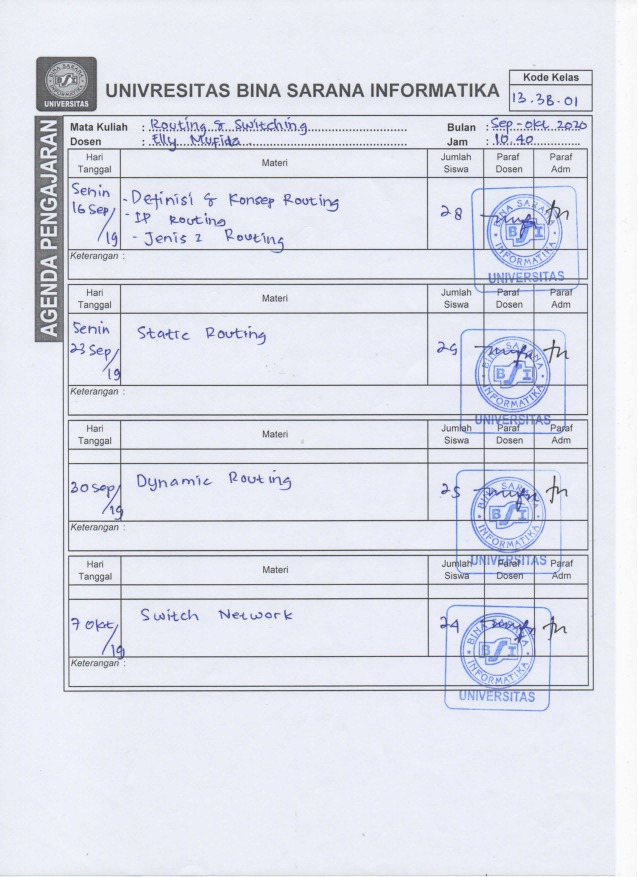 BINA SARANA
BSI
INFORMATIKA
UNIVERSITAS
UNIVRESITAS BINA SARANA INFORMATIKA
Kode Kelas
13.3B.01
AGENDA PENGAJARAN
Mata Kuliah : Routing & Switching Bulan : Sep - Okt 2020
Dosen : Elly Mufida Jam : 10.40
Hari Tanggal Materi Jumlah Siswa Paraf Dosen Paraf Adm
Senin - Definisi & Konsep Routing 28
16 Sep - IP Routing
/19 - Jenis2 Routing
Keterangan :
BINA SARANA
BSI
INFORMATIKA
UNIVERSITAS
Hari Tanggal Materi Jumlah Siswa Paraf Dosen Paraf Adm
Senin Static Routing
23 Sep
/19
Keterangan :
BINA SARANA
BSI
INFORMATIKA
UNIVERSITAS
Hari Tanggal Materi Jumlah Siswa Paraf Dosen Paraf Adm
30 Sep Dynamic Routing 25
/19
Keterangan :
BINA SARANA
BSI
INFORMATIKA
UNIVERSITAS
Hari Tanggal Materi Jumlah Siswa Paraf Dosen Paraf Adm
7 Okt Switch Network 24
/19
Keterangan :
BINA SARANA
BSI
INFORMATIKA
UNIVERSITAS